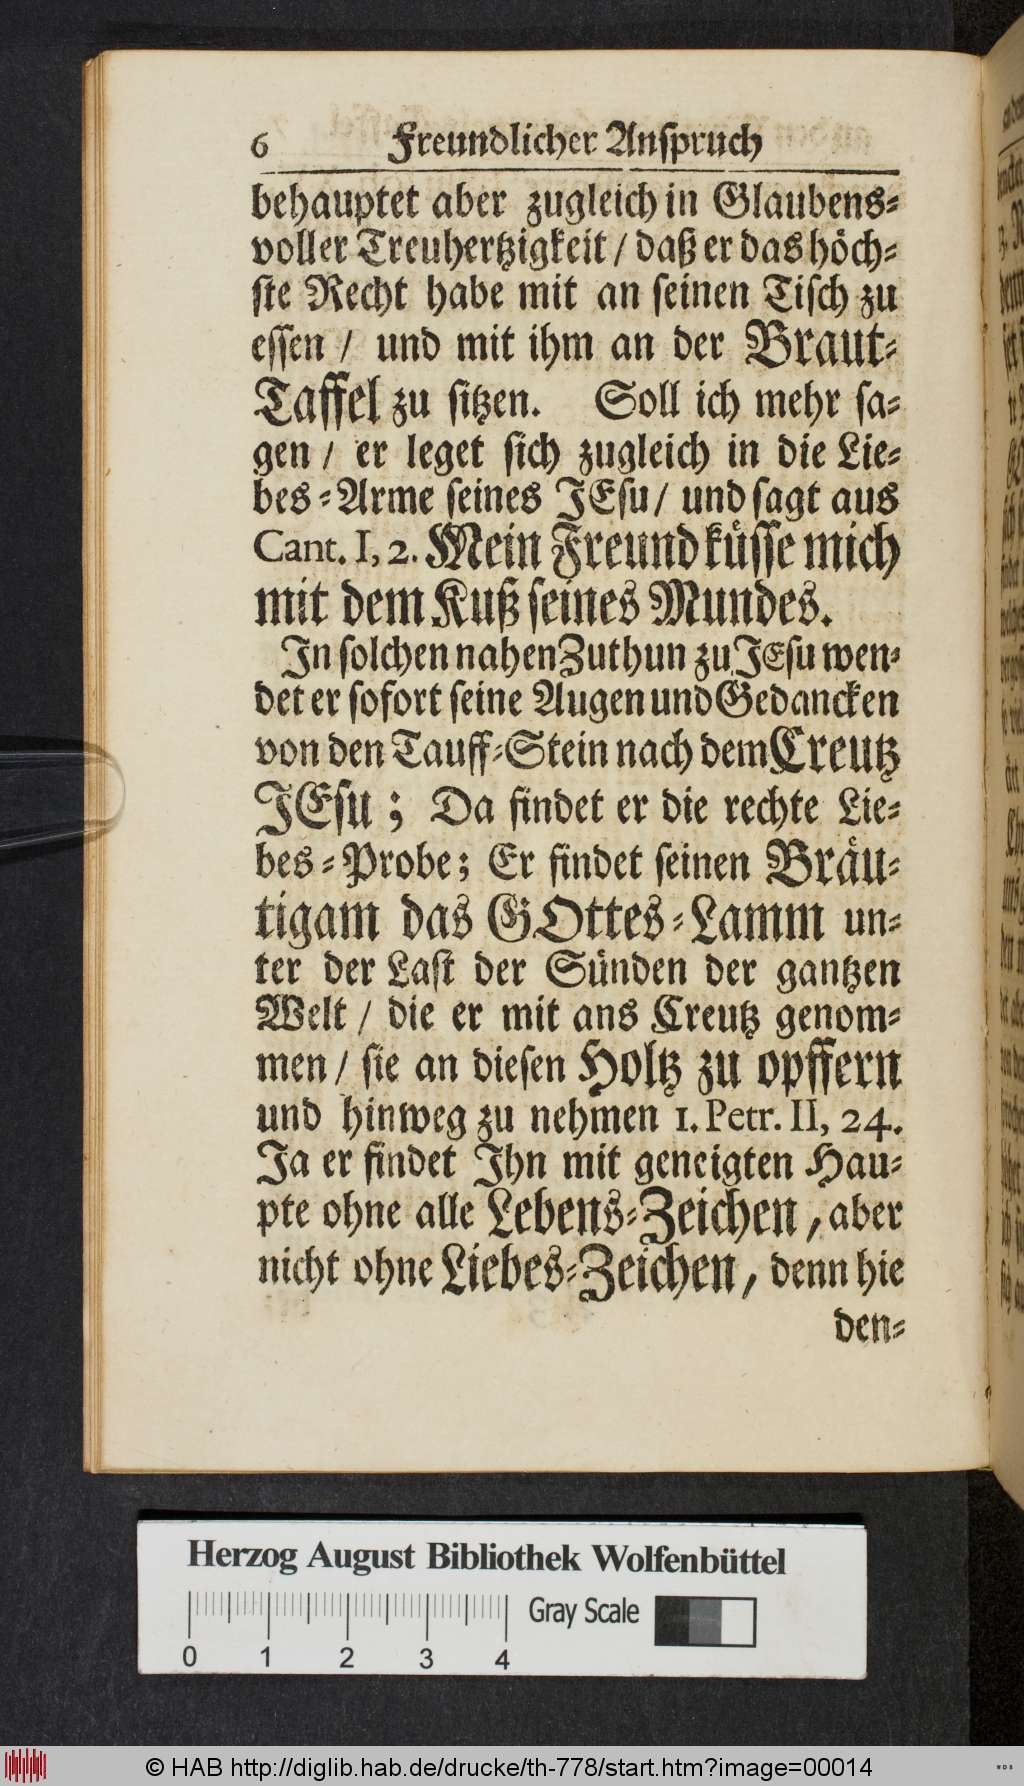 6 Freundlicher Anspruch
behauptet aber zugleich in Glaubens-
voller Treuhertzigkeit / daß er das höch-
ste Recht habe mit an seinen Tisch zu
essen / und mit ihm an der Braut-
Taffel zu sitzen. Soll ich mehr sa-
gen / er leget sich zugleich in die Lie-
bes-Arme seines JEsu / und sagt aus
Cant. I, 2. Mein Freund küsse mich
mit dem Kuß seines Mundes.
In solchen nahen Zuthun zu JEsu wen-
det er sofort seine Augen und Gedancken
von den Tauff-Stein nach dem Creutz
JEsu; Da findet er die rechte Lie-
bes-Probe; Er findet seinen Bräu-
tigam das GOttes-Lamm un-
ter der Last der Sünden der gantzen
Welt / die er mit ans Creutz genom-
men / sie an diesen Holtz zu opffern
und hinweg zu nehmen 1. Petr. II, 24.
Ja er findet Ihn mit geneigten Hau-
pte ohne alle Lebens-Zeichen, aber
nicht ohne Liebes-Zeichen, denn hie
den-
Herzog August Bibliothek Wolfenbüttel
Gray Scale
0 1 2 3 4
© HAB http://diglib.hab.de/drucke/th-778/start.htm?image=00014